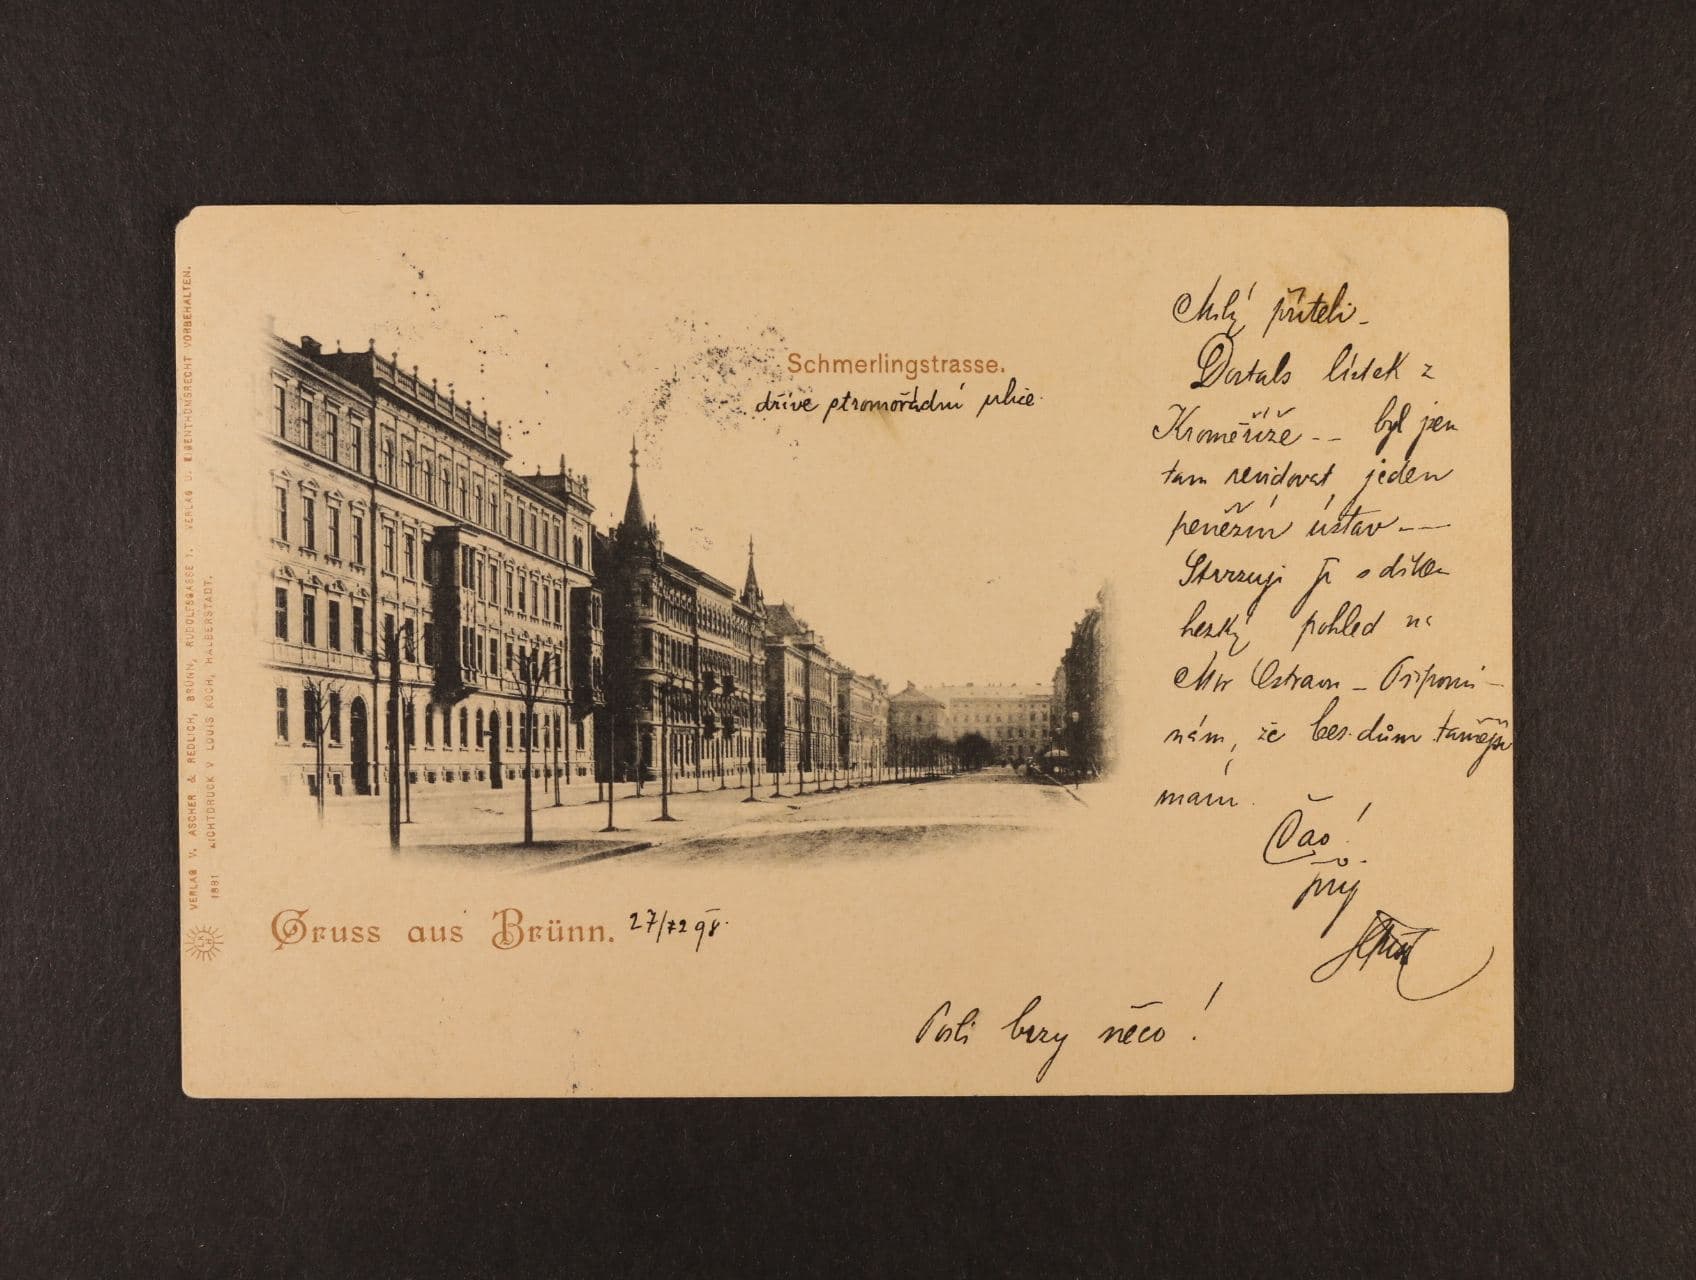 VERLAG V. ASCHER & REDLICH, BRÜNN, RUDOLFSGASSE 1. VERLAG U. EIGENTHUMSRECHT VORBEHALTEN.
LICHTDRUCK V. LOUIS KOCH, HALBERSTADT.
1891
Schmerlingstrasse.
dříve stromořadní ulice.
Gruss aus Brünn. 27/12 98.
Milý příteli -
Dostals lístek z
Kroměříže -- byl jsem
tam revidovat jeden
peněžní ústav --
Stvrzuji s díkem
hezký pohled na
Mor Ostravu - Připomí-
nám, že bes. dům
mám.
Čao!
Pošli brzy něco!